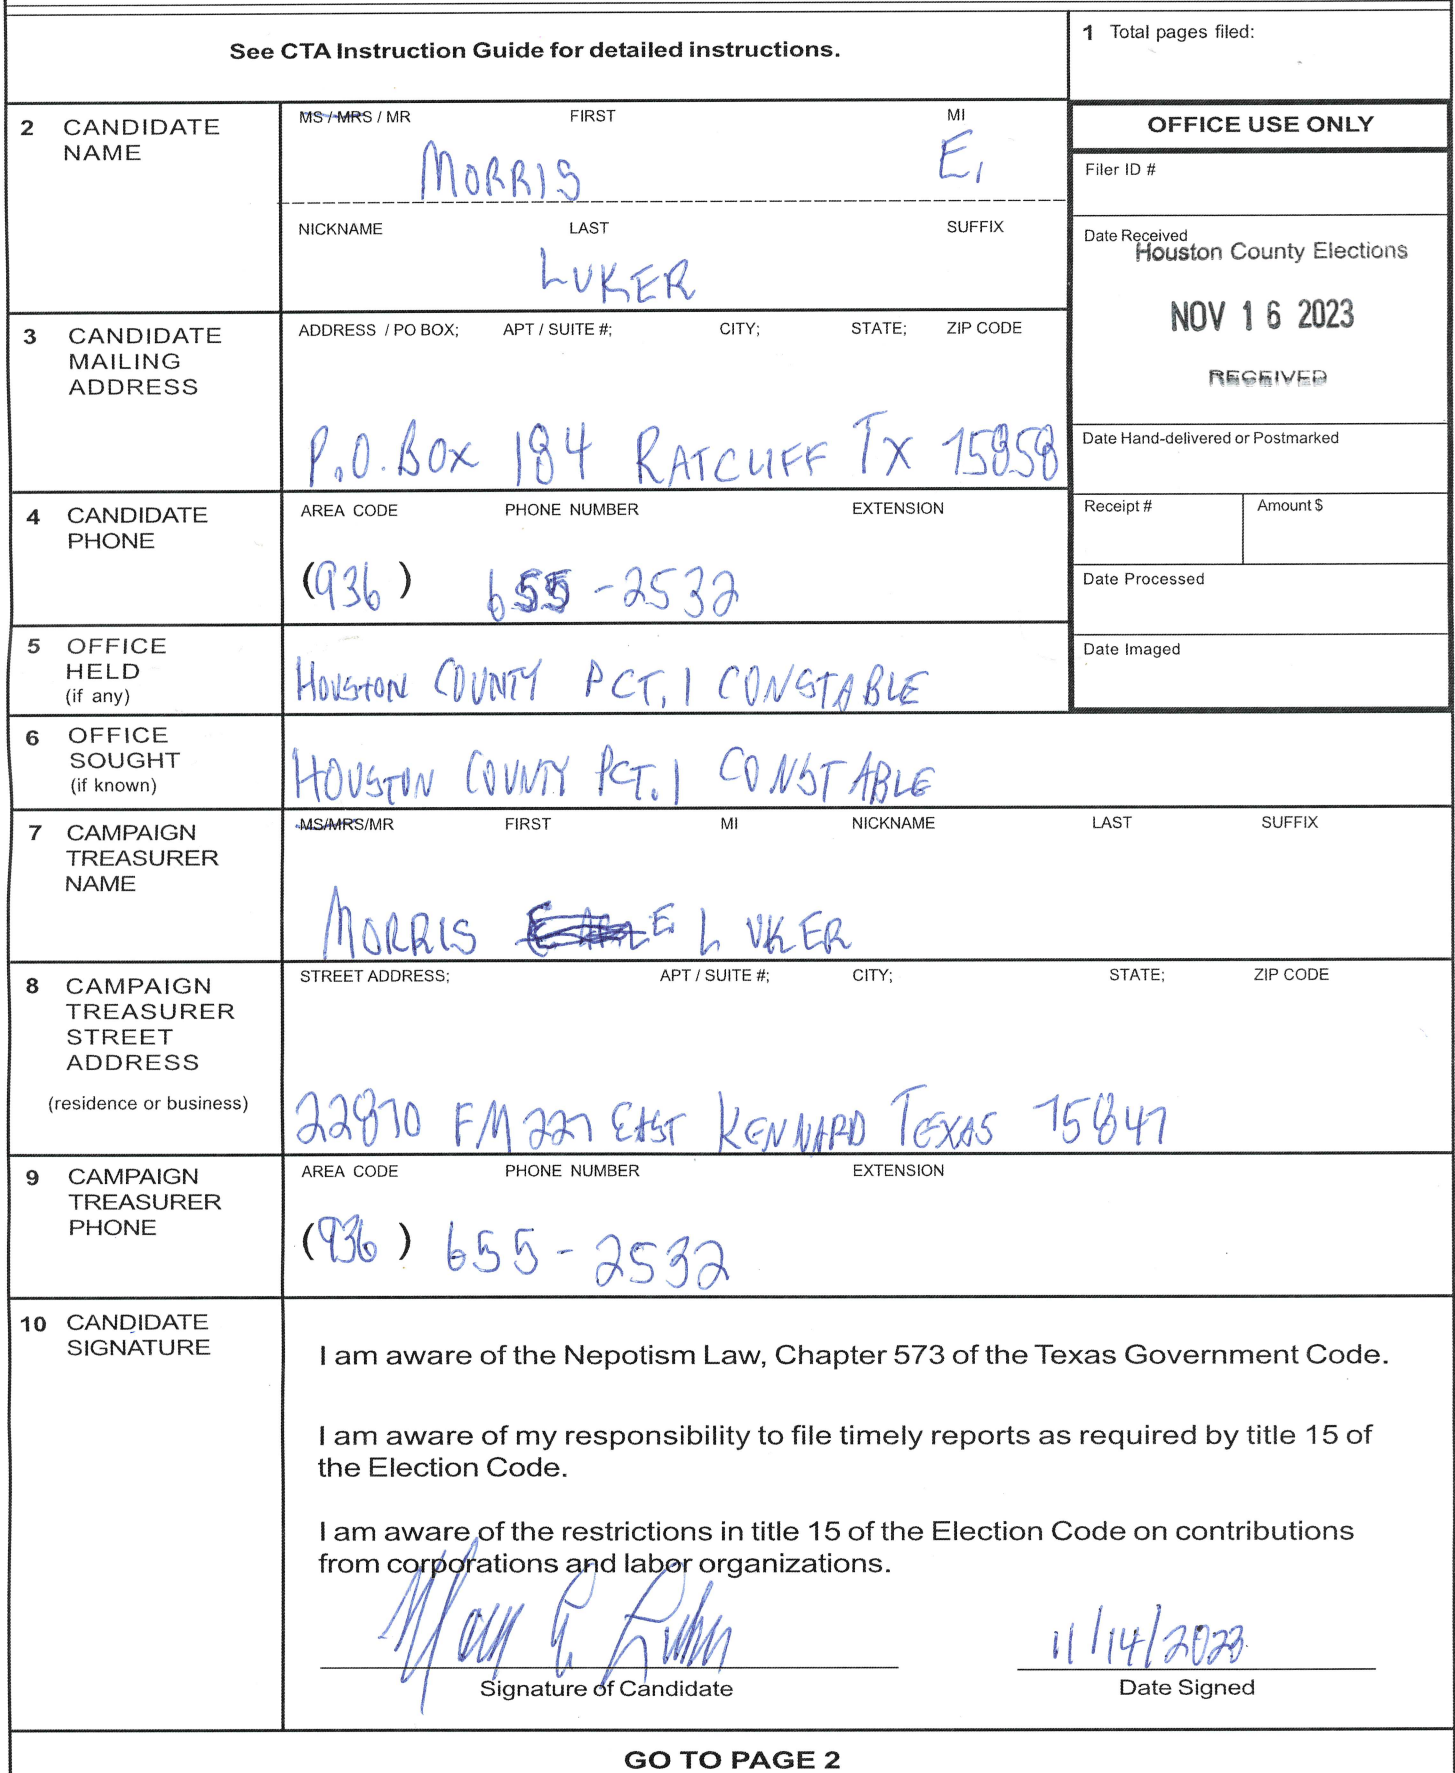 See CTA Instruction Guide for detailed instructions.
1 Total pages filed:
2 CANDIDATE NAME
MS / MRS / MR FIRST MI
MORRIS E.
NICKNAME LAST SUFFIX
LUKER
OFFICE USE ONLY
Filer ID #
Date Received
Houston County Elections
NOV 16 2023
RECEIVED
Date Hand-delivered or Postmarked
Receipt # Amount $
Date Processed
Date Imaged
3 CANDIDATE MAILING ADDRESS
ADDRESS / PO BOX; APT / SUITE #; CITY; STATE; ZIP CODE
P.O. BOX 184 RATCLIFF TX 75858
4 CANDIDATE PHONE
AREA CODE PHONE NUMBER EXTENSION
(936) 655-2532
5 OFFICE HELD (if any)
HOUSTON COUNTY PCT. 1 CONSTABLE
6 OFFICE SOUGHT (if known)
HOUSTON COUNTY PCT. 1 CONSTABLE
7 CAMPAIGN TREASURER NAME
MS/MRS/MR FIRST MI NICKNAME LAST SUFFIX
MORRIS E LUKER
8 CAMPAIGN TREASURER STREET ADDRESS
(residence or business)
STREET ADDRESS; APT / SUITE #; CITY; STATE; ZIP CODE
22870 FM 227 EAST KENNARD TEXAS 75847
9 CAMPAIGN TREASURER PHONE
AREA CODE PHONE NUMBER EXTENSION
(936) 655-2532
10 CANDIDATE SIGNATURE
I am aware of the Nepotism Law, Chapter 573 of the Texas Government Code.
I am aware of my responsibility to file timely reports as required by title 15 of
the Election Code.
I am aware of the restrictions in title 15 of the Election Code on contributions
from corporations and labor organizations.
11/14/2023
Signature of Candidate Date Signed
GO TO PAGE 2